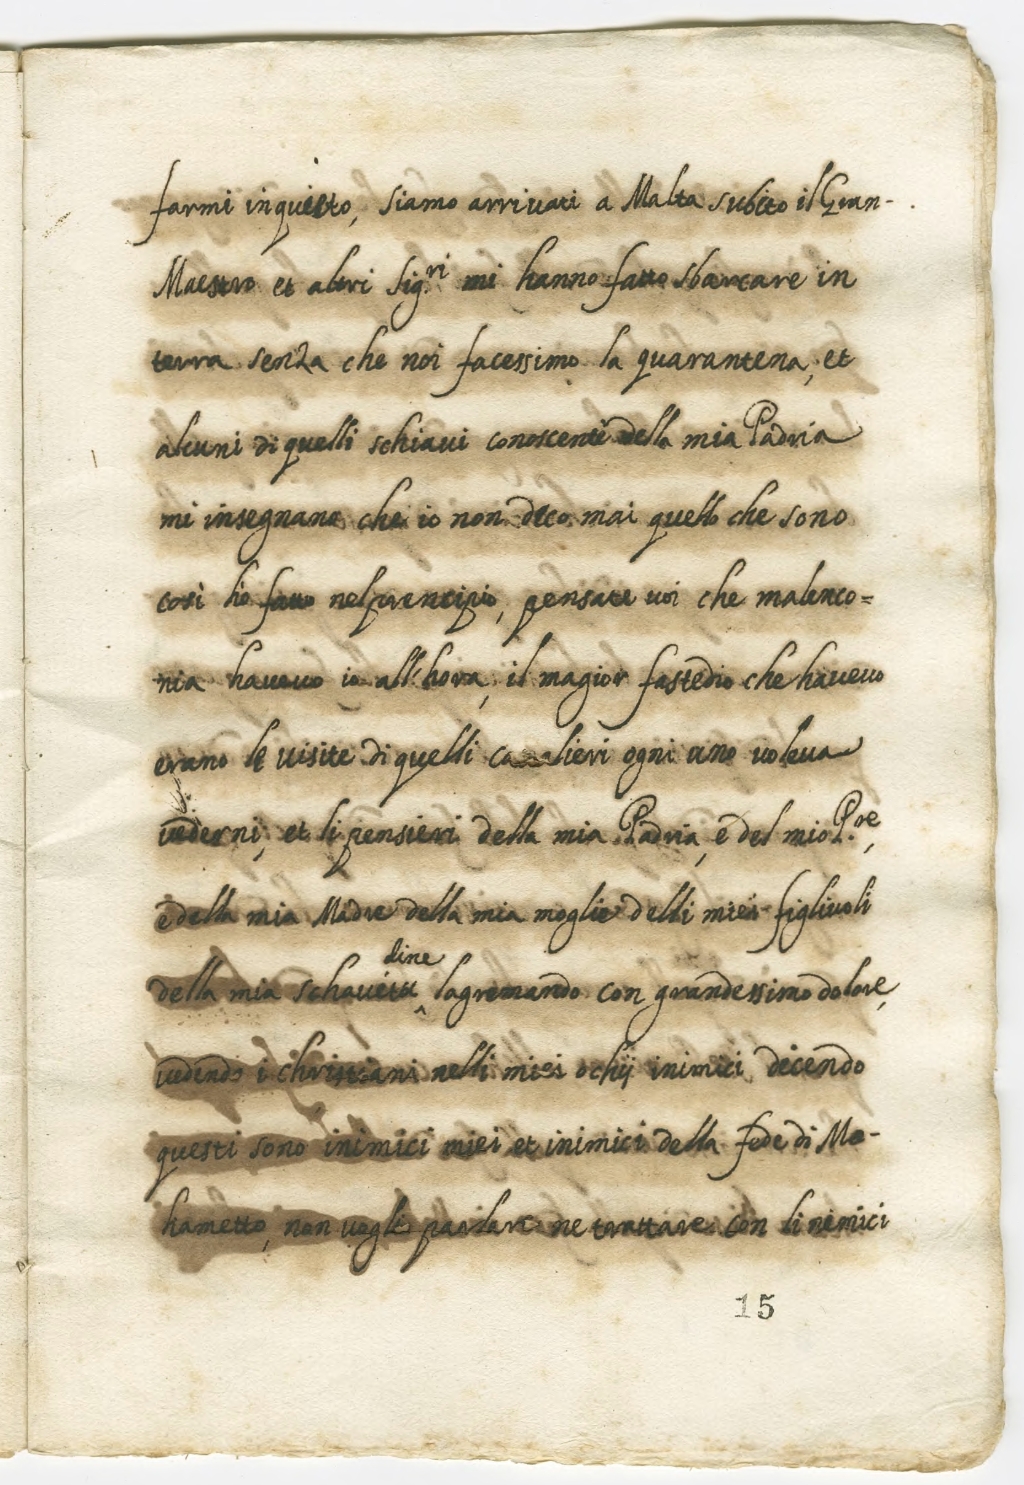 farmi inquieto, siamo arrivati a Malta subito il Gran-
Maestro et altri Sig.ri mi hanno fatto sbarcare in
terra senza che noi facessimo la quarantena, et
alcuni di quelli schiavi conoscenti della mia Padria
mi insegnano che io non dico mai quello che sono
così hò fatto nel prencipio, pensate voi che malenco=
nia havevo io all'hora, il magior fastedio che havevo
erano le visite di quelli cavalieri ogni uno voleva
vederni, et li pensieri della mia Padria, e del mio P.re,
e della mia Madre della mia moglie delli miei figlivoli
della mia schavitu dine lagremando con grandessimo dolore,
vedendo i christiani nelli miei ochij inimici decendo
questi sono inimici miei et inimici della fede di Ma-
hametto, non vogli parlare ne trattare con li nemici
15